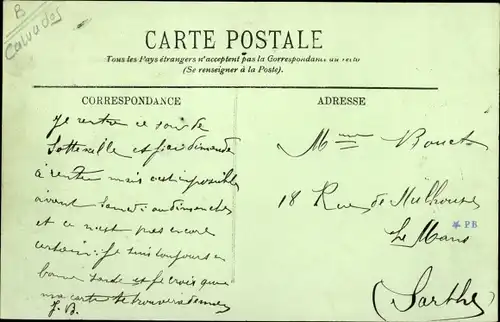 B
Calvados
CARTE POSTALE
Tous les Pays étrangers n'acceptent pas la Correspondance au recto
(Se renseigner à la Poste).
CORRESPONDANCE
ADRESSE
Je rentre ce soir de
Sotteville et j'ai demandé
à rentrer mais c'est impossible
avant Samedi ou dimanche
et ce n'est pas encore
certain. Je suis toujours en
bonne santé et je crois que
ma carte te trouvera de même
J. B.
Mme Bouet
18 Rue de Mulhouse
Le Mans
(Sarthe)
P.B